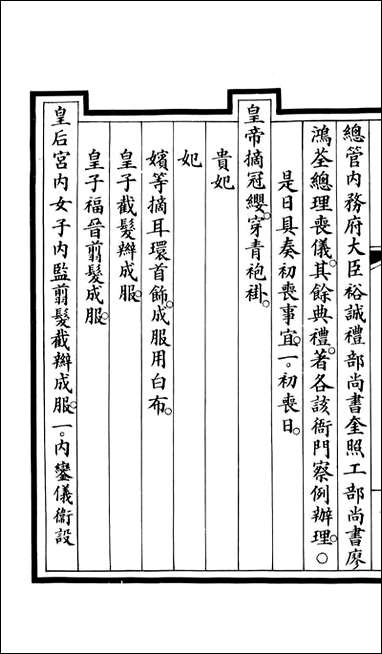 總管内務府大臣裕誠禮部尚書奎照工部尚書廖
鴻荃總理喪儀。其餘典禮。著各該衙門察例辦理。○
是日具奏初喪事宜。一。初喪日。
皇帝摘冠纓。穿青袍褂。
貴妃
妃
嬪等摘耳環首飾。成服用白布。
皇子截髮辮成服。
皇子福晉翦髮成服。
皇后宮内女子内監翦髮截辮成服。一。内鑾儀衞設